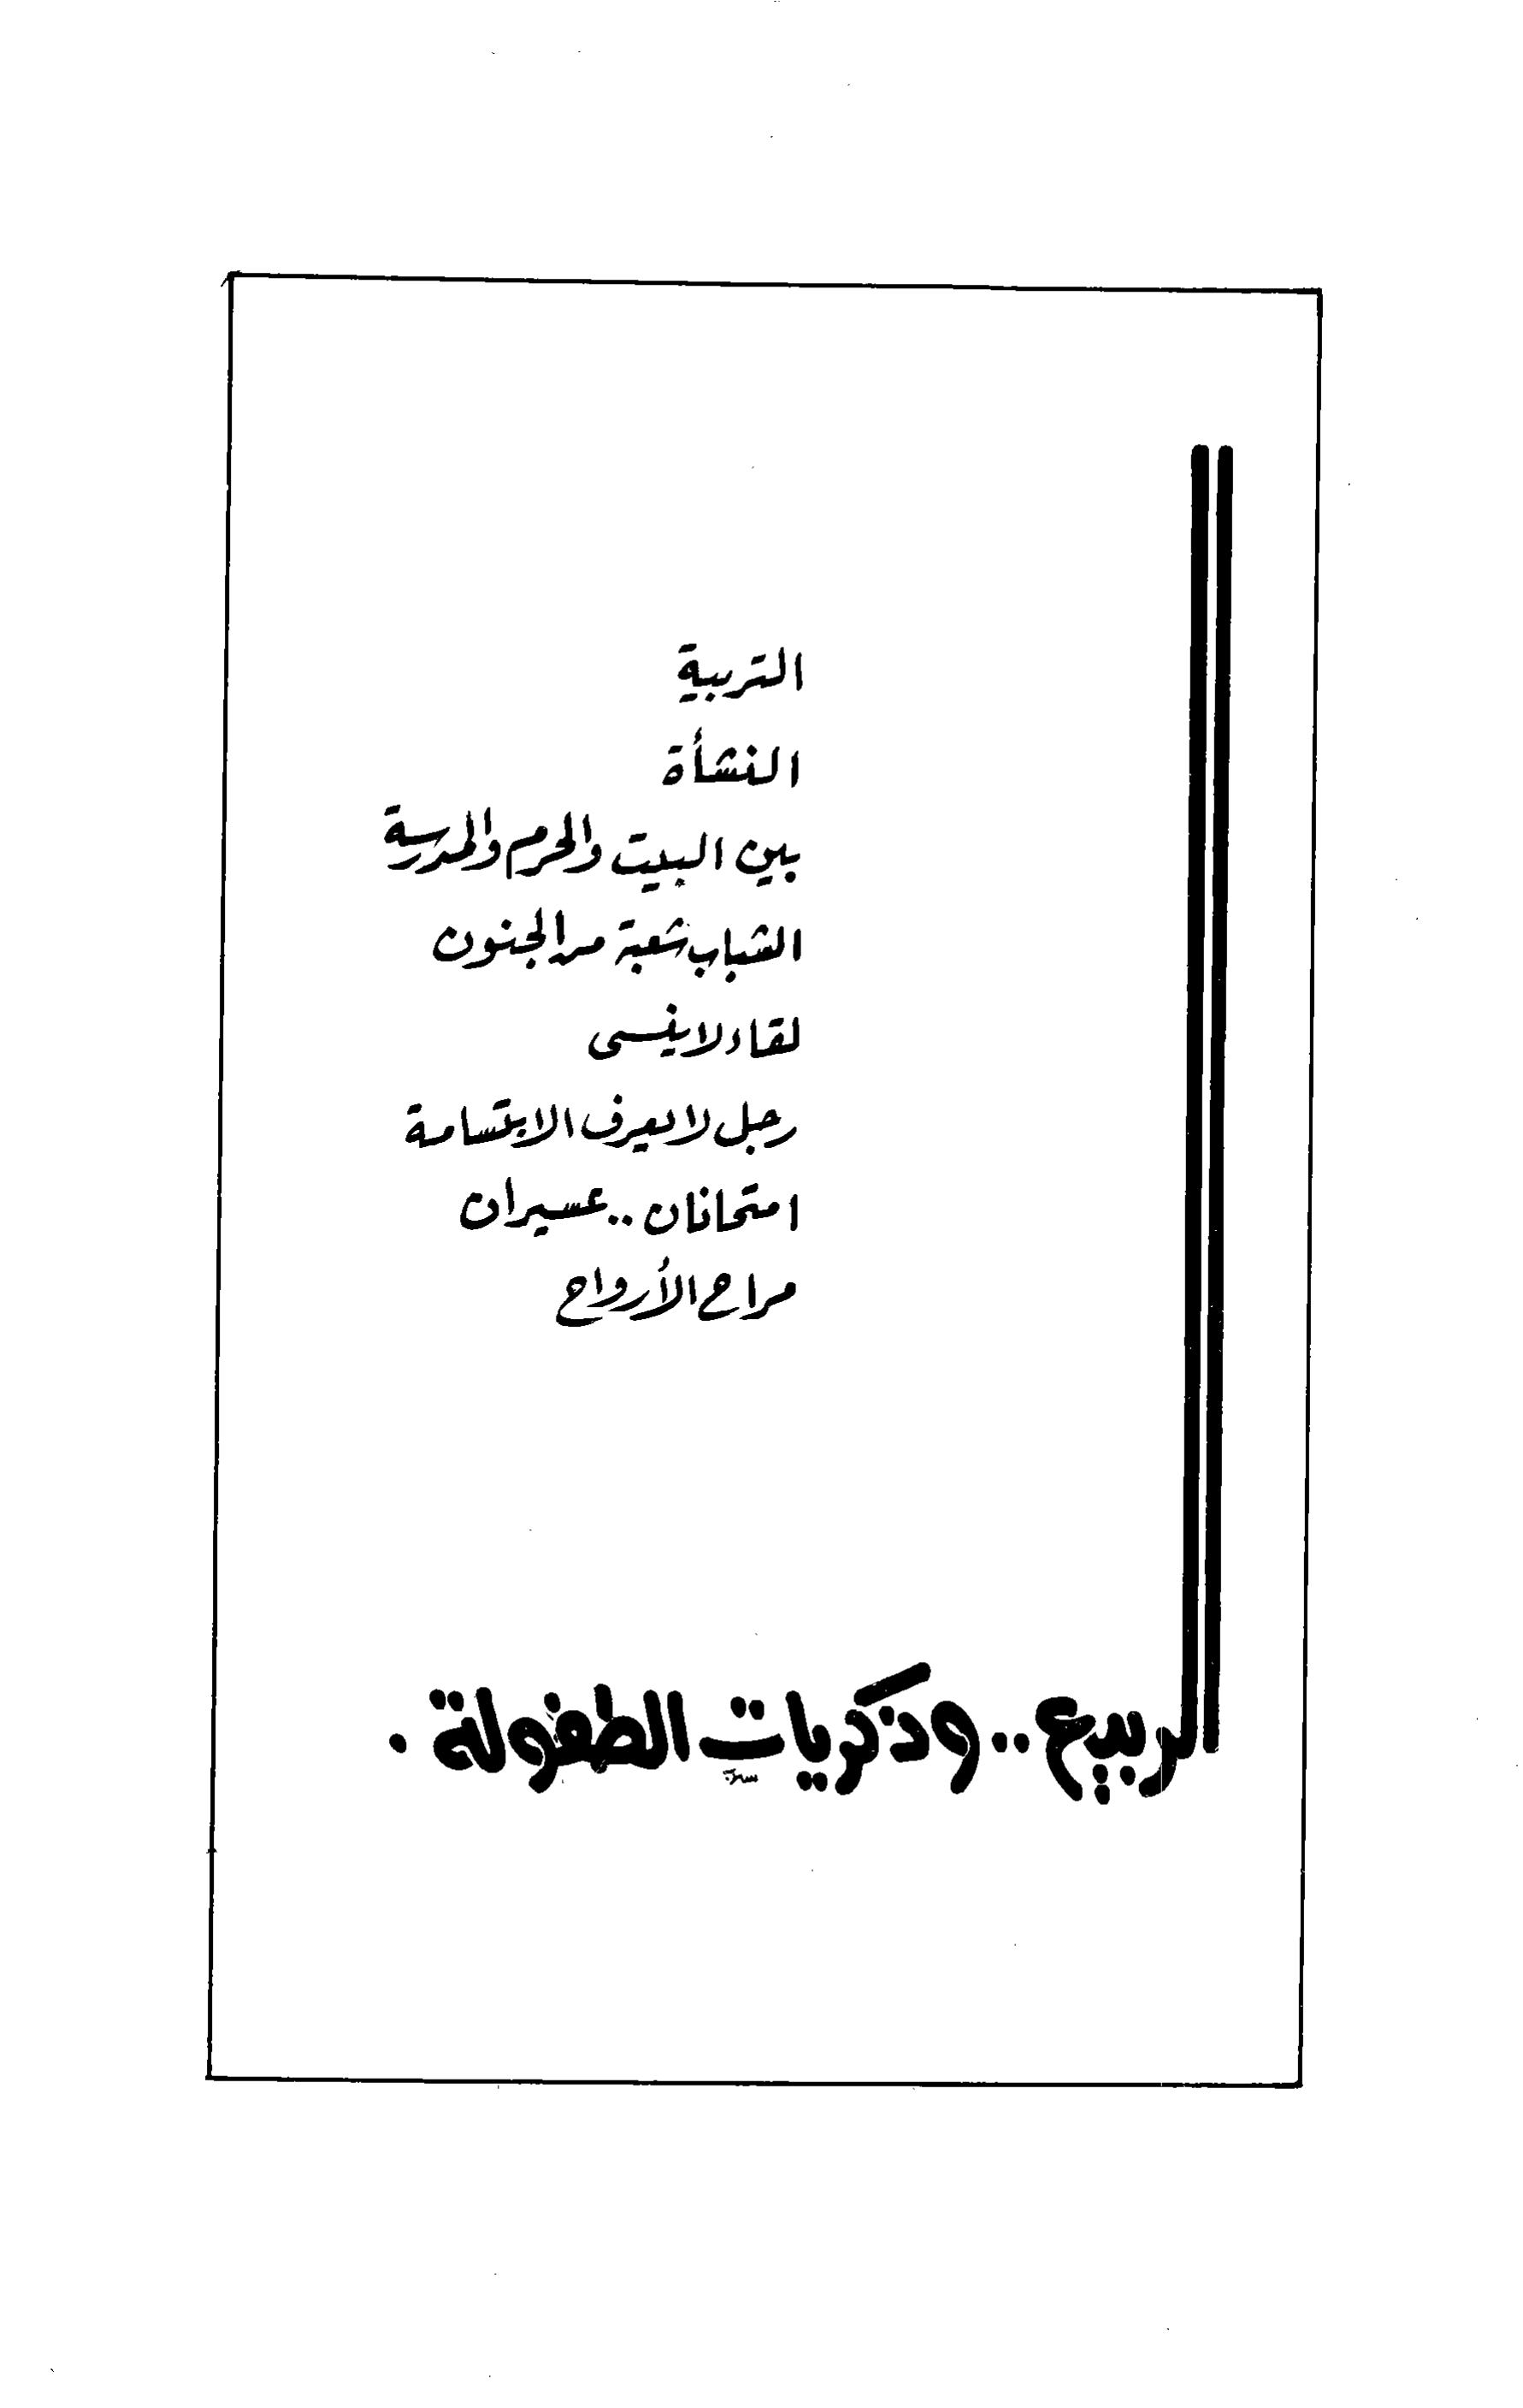 التربية
النشأة
بين البيت والحرم والمدرسة
الشباب شعبة من الجنون
لقاء لا ينسى
رجل لا يعرف الابتسامة
امتحانان .. عسيران
مراح الأرواح
الربيع .. وذكريات الطفولة .